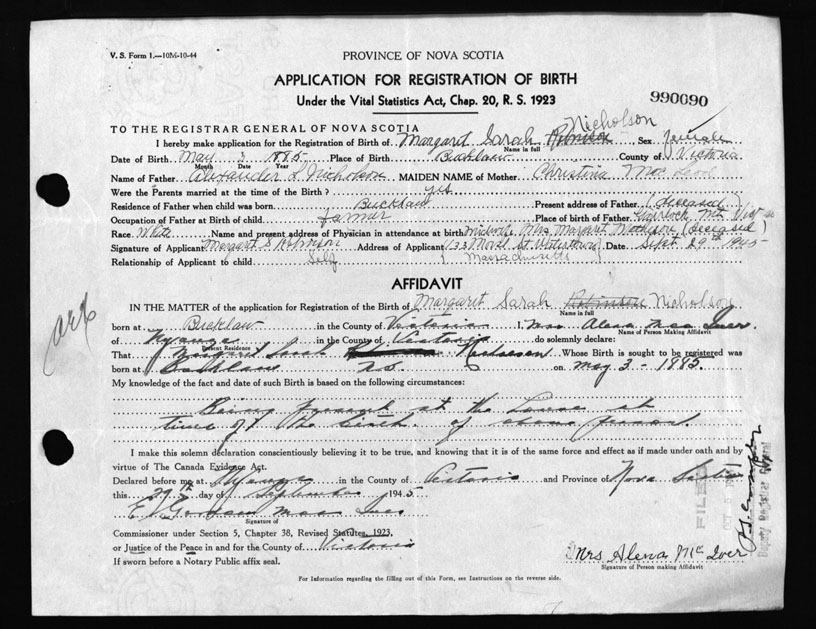 V. S. Form 1.—10M-10-44
PROVINCE OF NOVA SCOTIA
APPLICATION FOR REGISTRATION OF BIRTH
990690
Under the Vital Statistics Act, Chap. 20, R. S. 1923
Nicholson
TO THE REGISTRAR GENERAL OF NOVA SCOTIA
I hereby make application for the Registration of Birth of Margaret Sarah Robinson Sex female
Name in full
Date of Birth May 3 1885 Place of Birth Bucklaw County of Victoria
Month Date Year
Name of Father Alexander Nicholson MAIDEN NAME of Mother Christina Mac Leod
Were the Parents married at the time of the Birth? yes
Residence of Father when child was born Bucklaw Present address of Father (deceased)
Occupation of Father at Birth of child farmer Place of birth of Father Mt Vic
Race White Name and present address of Physician in attendance at birth midwife Mrs. Margaret (deceased)
Signature of Applicant Margaret S Robinson Address of Applicant 133 St. Watertown Date Sept 29th 1945
Relationship of Applicant to child Self Massachusetts
AFFIDAVIT
IN THE MATTER of the application for Registration of the Birth of Margaret Sarah Robinson Nicholson
Name in full
born at Bucklaw in the County of Victoria I, Mrs Alena Mac Iver
Name of Person Making Affidavit
of Nyanza in the County of Victoria do solemnly declare:
Present Residence
That Margaret Sarah Nicholson Whose Birth is sought to be registered was
born at Bucklaw N.S. on May 3 - 1885.
My knowledge of the fact and date of such Birth is based on the following circumstances:
Being present at the house at
time of the birth of above person.
I make this solemn declaration conscientiously believing it to be true, and knowing that it is of the same force and effect as if made under oath and by
virtue of The Canada Evidence Act.
Declared before me at Nyanza in the County of Victoria and Province of Nova Scotia
this 29th day of September 1945
E. Gordon Mac Iver
Signature of
Commissioner under Section 5, Chapter 38, Revised Statutes, 1923,
or Justice of the Peace in and for the County of Victoria
If sworn before a Notary Public affix seal.
Mrs Alena Mc Iver
Signature of Person making Affidavit
For Information regarding the filling out of this Form, see Instructions on the reverse side.
FILED
OCT 5
Deputy Registrar General